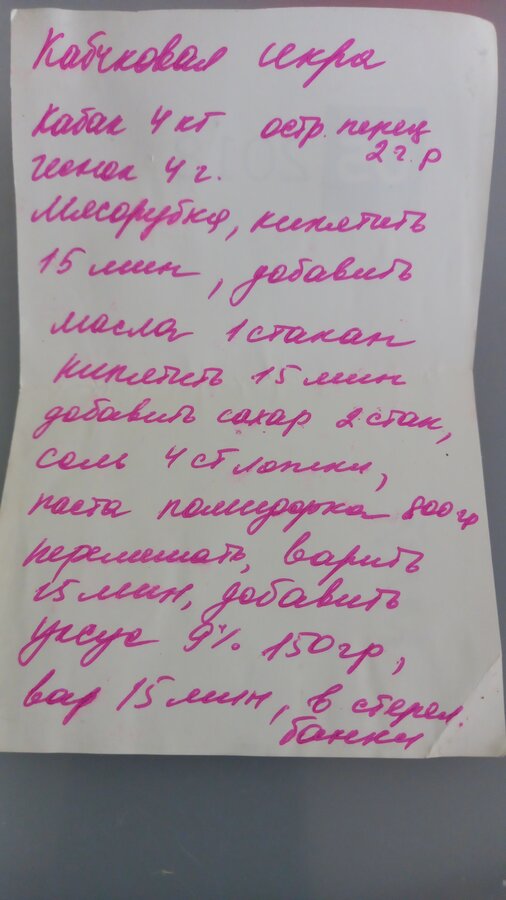 Кабчковая икра
Кабак 4 кг остр. перец
2 г. р
чеснок 4 г.
мясорубка, кипятить
15 мин, добавить
масла 1 стакан
кипятить 15 мин
добавить сахар 2 стак,
соль 4 ст ложки,
паста помидорка 800 гр
перемешать, варить
15 мин, добавить
уксус 9% 150 гр,
вар 15 мин, в стерел.
банки